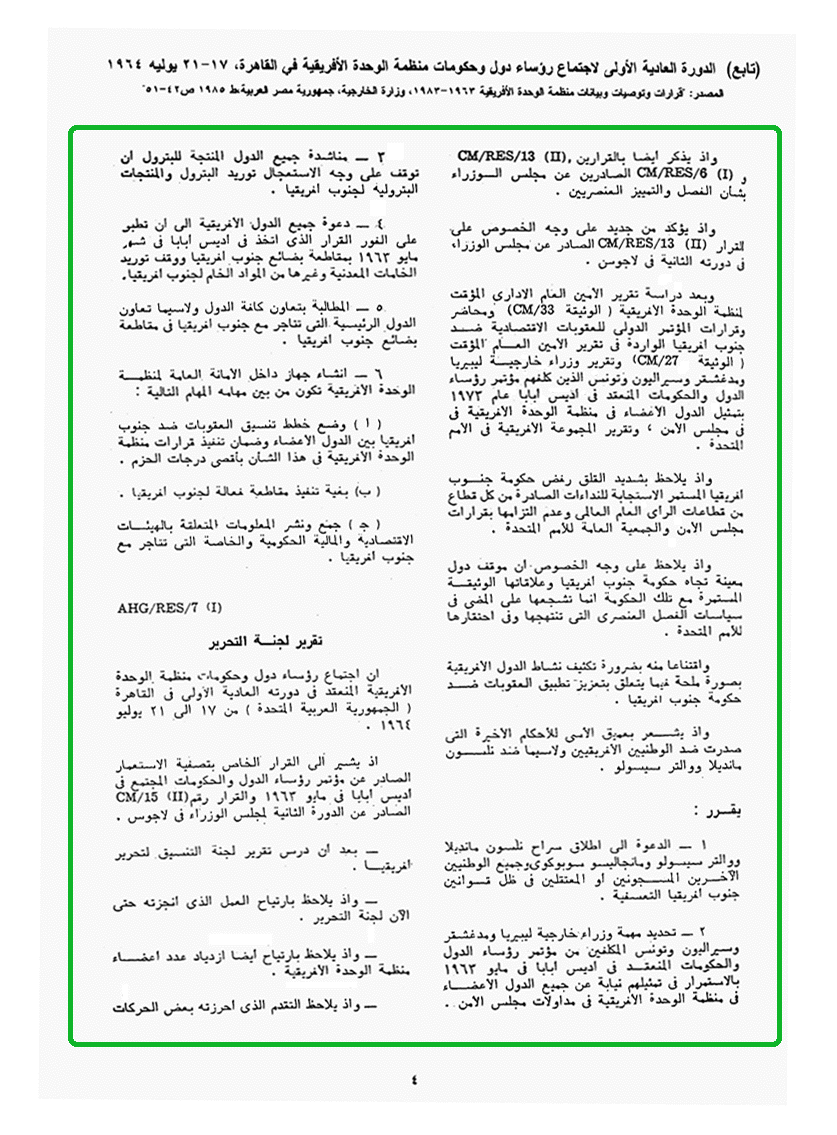 (تابع) الدورة العادية الأولى لاجتماع رؤساء دول وحكومات منظمة الوحدة الأفريقية في القاهرة، ١٧-٢١ يوليه ١٩٦٤
المصدر: "قرارات وتوصيات وبيانات منظمة الوحدة الأفريقية ١٩٦٣-١٩٨٣، وزارة الخارجية، جمهورية مصر العربية، ط ١٩٨٥ ص٤٢-٥١"
واذ يذكر أيضا بالقرارين CM/RES/13 (II),
و CM/RES/6 (I) الصادرين عن مجلس الوزراء
بشأن الفصل والتمييز العنصريين .
واذ يؤكد من جديد على وجه الخصوص على
القرار CM/RES/13 (II) الصادر عن مجلس الوزراء،
فى دورته الثانية فى لاجوس .
وبعد دراسة تقرير الأمين العام الادارى المؤقت
لمنظمة الوحدة الأفريقية ( الوثيقة CM/33) ومحاضر
وقرارات المؤتمر الدولى للعقوبات الاقتصادية ضد
جنوب افريقيا الواردة فى تقرير الامين العام المؤقت
( الوثيقة CM/27) وتقرير وزراء خارجية ليبيريا
ومدغشقر وسيراليون وتونس الذين كلفهم مؤتمر رؤساء
الدول والحكومات المنعقد فى اديس ابابا عام ١٩٧٣
بتمثيل الدول الأعضاء فى منظمة الوحدة الأفريقية فى
فى مجلس الأمن ، وتقرير المجموعة الأفريقية فى الأمم
المتحدة .
واذ يلاحظ بشديد القلق رفض حكومة جنوب
افريقيا المستمر الاستجابة للنداءات الصادرة من كل قطاع
من قطاعات الرأى العام العالمى وعدم التزامها بقرارات
مجلس الأمن والجمعية العامة للأمم المتحدة .
واذ يلاحظ على وجه الخصوص ان موقف دول
معينة تجاه حكومة جنوب افريقيا وعلاقاتها الوثيقة
المستمرة مع تلك الحكومة انما تشجعها على المضى فى
سياسات الفصل العنصرى التى تنتهجها وفى احتقارها
للأمم المتحدة .
واقتناعا منه بضرورة تكثيف نشاط الدول الأفريقية
بصورة ملحة فيما يتعلق بتعزيز تطبيق العقوبات ضد
حكومة جنوب افريقيا .
واذ يشعر بعميق الأسى للأحكام الأخيرة التى
صدرت ضد الوطنيين الأفريقيين ولاسيما ضد نلسون
مانديلا ووالتر سيسولو .
يقرر :
١ ــ الدعوة الى اطلاق سراح نلسون مانديلا
ووالتر سيسولو ومانجاليسو سوبوكوى وجميع الوطنيين
الآخرين المسجونين أو المعتقلين فى ظل قوانين
جنوب افريقيا التعسفية .
٢ ــ تحديد مهمة وزراء خارجية ليبيريا ومدغشقر
وسيراليون وتونس المكلفين من مؤتمر رؤساء الدول
والحكومات المنعقد فى اديس ابابا فى مايو ١٩٦٣
بالاستمرار فى تمثيلهم نيابة عن جميع الدول الأعضاء
فى منظمة الوحدة الأفريقية فى مداولات مجلس الأمن .
٣ ــ مناشدة جميع الدول المنتجة للبترول ان
توقف على وجه الاستعجال توريد البترول والمنتجات
البترولية لجنوب افريقيا .
٤ ــ دعوة جميع الدول الأفريقية الى ان تطبق
على الفور القرار الذى اتخذ فى اديس ابابا فى شهر
مايو ١٩٦٣ بمقاطعة بضائع جنوب افريقيا ووقف توريد
الخامات المعدنية وغيرها من المواد الخام لجنوب افريقيا.
٥ ــ المطالبة بتعاون كافة الدول ولاسيما تعاون
الدول الرئيسية التى تتاجر مع جنوب افريقيا فى مقاطعة
بضائع جنوب افريقيا .
٦ ــ انشاء جهاز داخل الأمانة العامة لمنظمة
الوحدة الأفريقية تكون من بين مهامه المهام التالية :
( أ ) وضع خطط تنسيق العقوبات ضد جنوب
افريقيا بين الدول الأعضاء وضمان تنفيذ قرارات منظمة
الوحدة الأفريقية فى هذا الشأن بأقصى درجات الحزم .
( ب) بغية تنفيذ مقاطعة فعالة لجنوب افريقيا .
( ج ) جمع ونشر المعلومات المتعلقة بالهيئات
الاقتصادية والمالية الحكومية والخاصة التى تتاجر مع
جنوب افريقيا .
AHG/RES/7 (I)
تقرير لجنة التحرير
ان اجتماع رؤساء دول وحكومات منظمة الوحدة
الأفريقية المنعقد فى دورته العادية الأولى فى القاهرة
( الجمهورية العربية المتحدة ) من ١٧ الى ٢١ يوليو
١٩٦٤ .
اذ يشير الى القرار الخاص بتصفية الاستعمار
الصادر عن مؤتمر رؤساء الدول والحكومات المجتمع فى
اديس ابابا فى مايو ١٩٦٣ والقرار رقم CM/15 (II)
الصادر عن الدورة الثانية لمجلس الوزراء فى لاجوس .
ــ بعد ان درس تقرير لجنة التنسيق لتحرير
افريقيا .
ــ واذ يلاحظ بارتياح العمل الذى انجزته حتى
الآن لجنة التحرير .
ــ واذ يلاحظ بارتياح أيضا ازدياد عدد اعضاء
منظمة الوحدة الأفريقية .
ــ واذ يلاحظ التقدم الذى احرزته بعض الحركات
٤